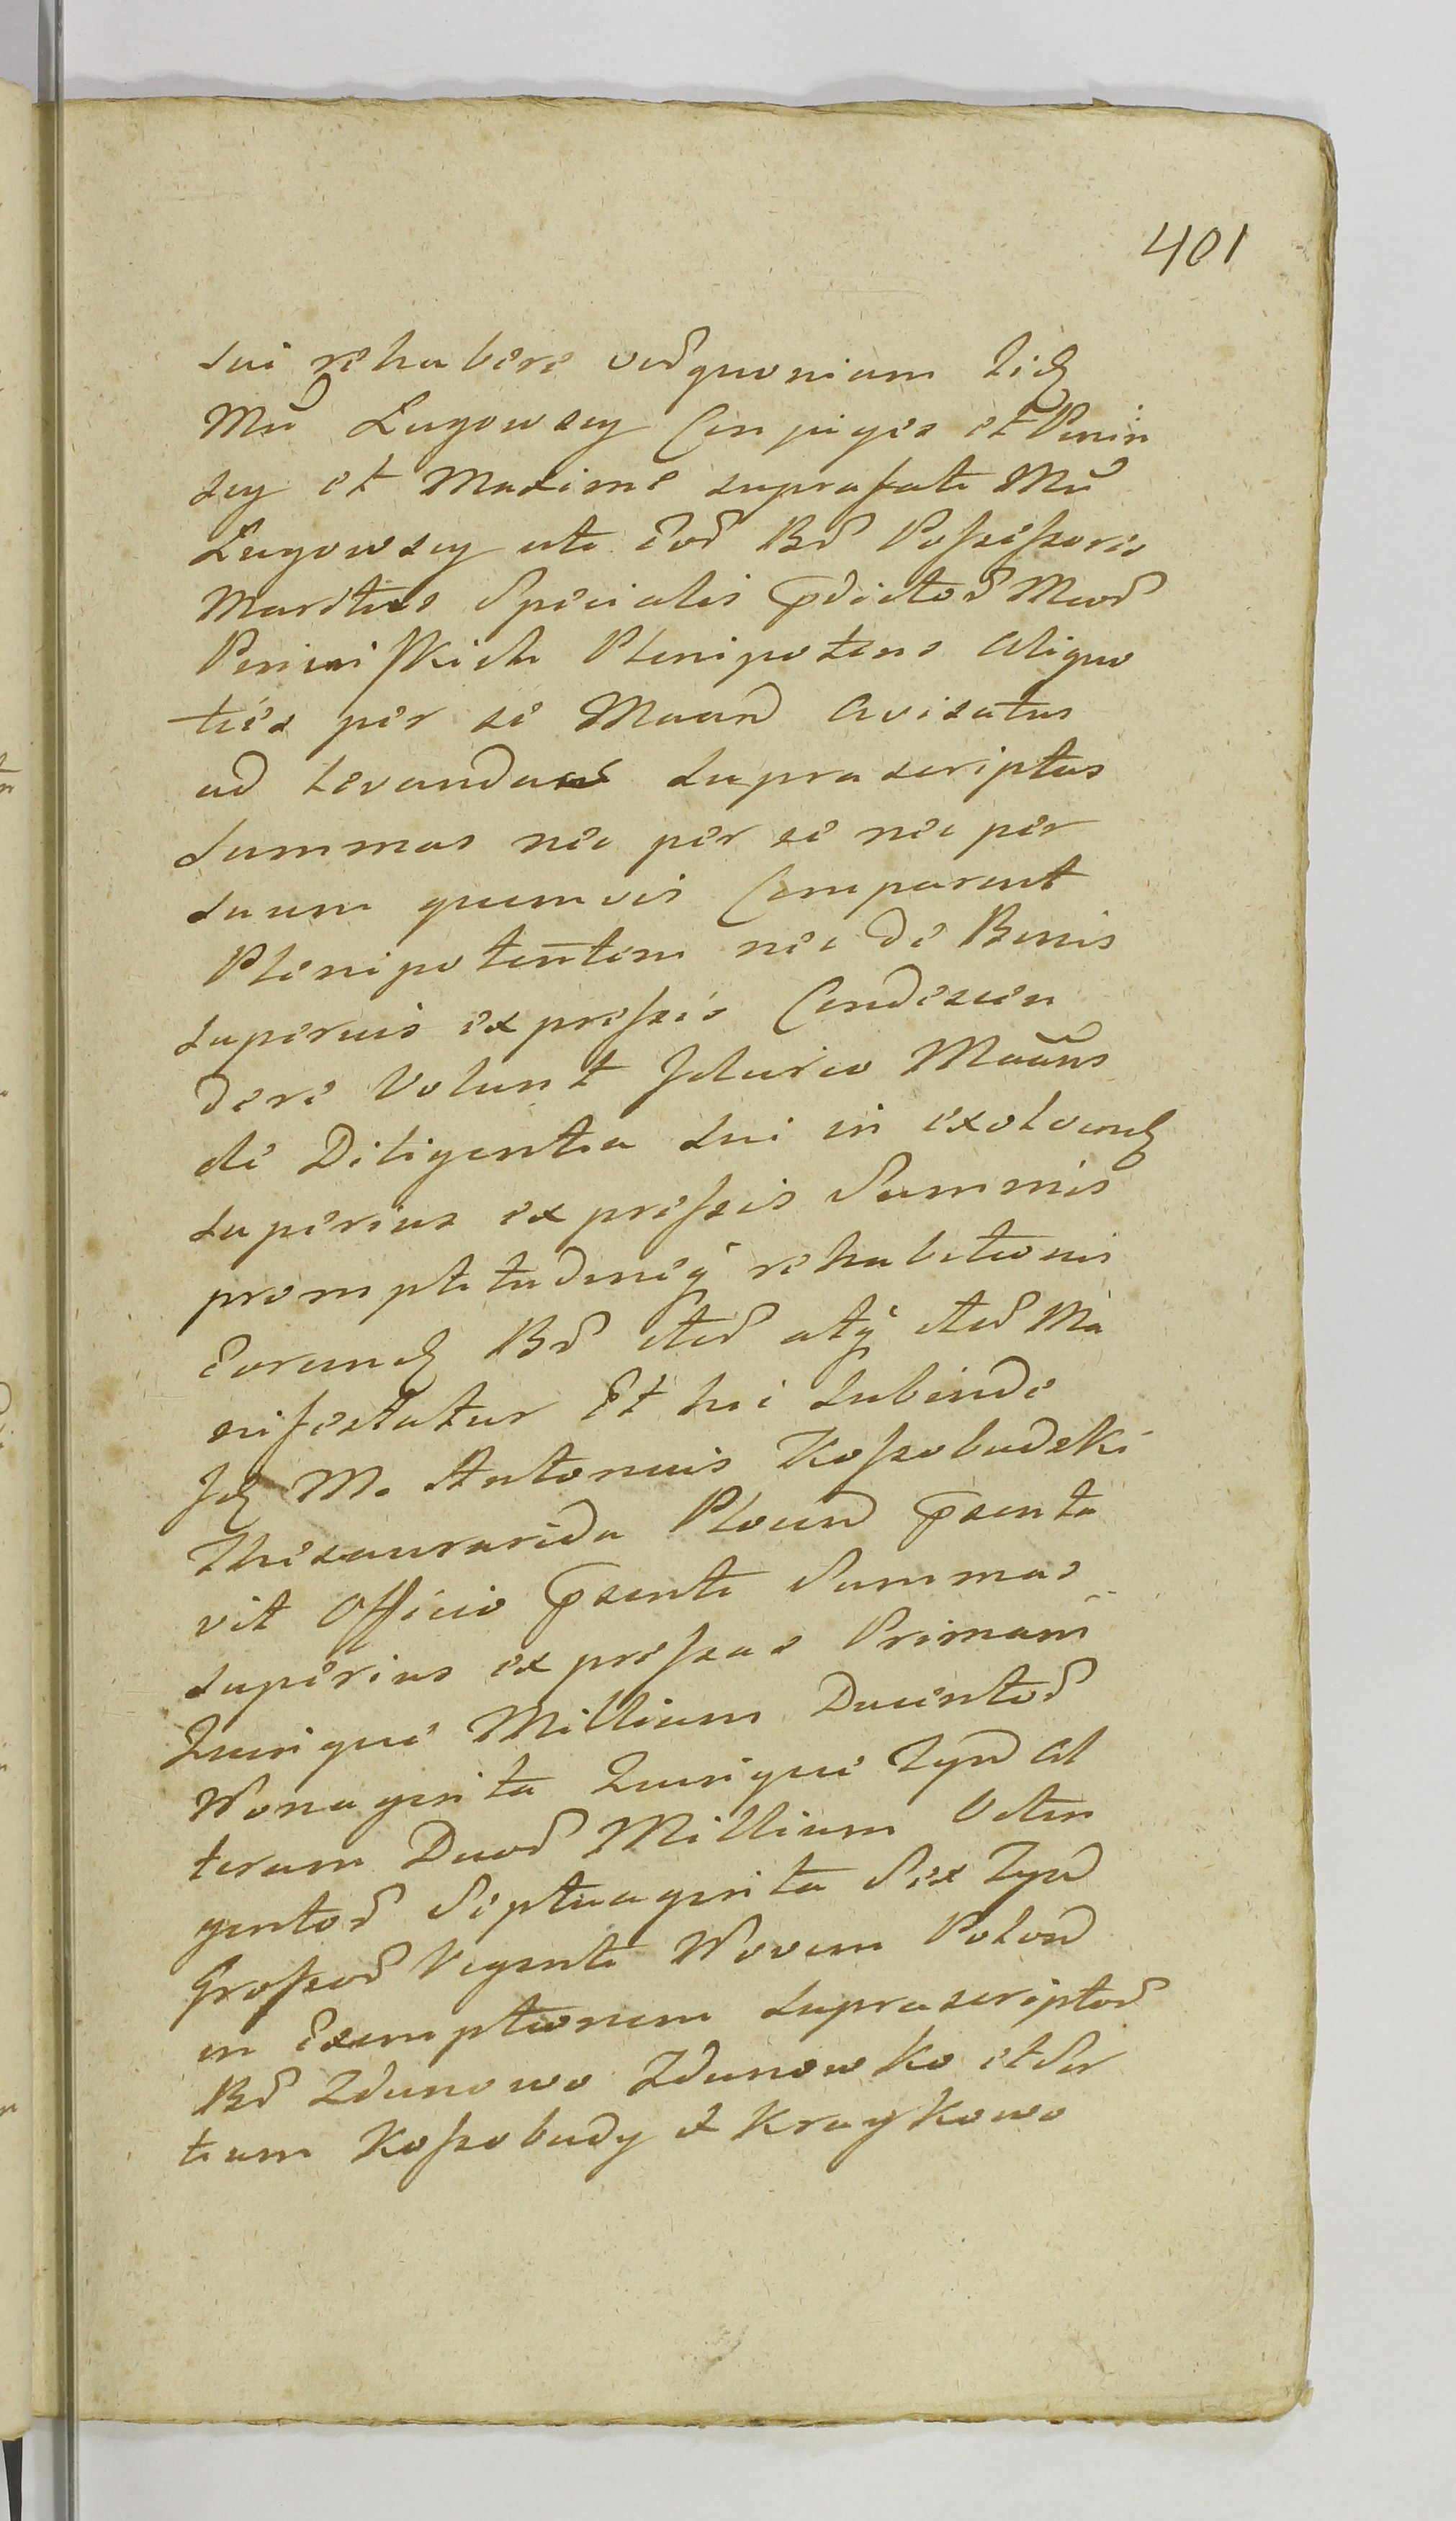 401
sui rehabere vedquoniam iid
Mci Lugowscy Conjuges et Penin
scy et Maxime suprafati Mci
Lugowscy uti eod Bd Possessores
Maritus Specialis pdictod Mcod
Peninskich Plenipotens aliquo
ties per se Maand avisatus
ad levandas suprascriptas
summas nec per se nec per
suum quemvis Comparent
Plenipotentem nec de Bonis
superius expressis Condescen
dere volunt Idcirco Maans
de Diligentia sui in exolvend
superius expressis Summis
promptitudineq rehabitionis
eorund Bd itid atq itid Ma
nifestatur Et hic subinde
Id M. Antonius Kossobudzki
Thesaurarida Plocen psenta
vit Officio psenti Summas
superius expressas Primam
Quinque Millium Ducentod
Nonaginta Quinque Zyn al
teram Duod Millium Octin
gentod Septuaginta Sex Zyn
Grossod Viginti Novem Polon
in Exemptionem suprascriptod
Bd Zdunowo Zdunowko et Sor
tium Kossobudy et Kraykowo